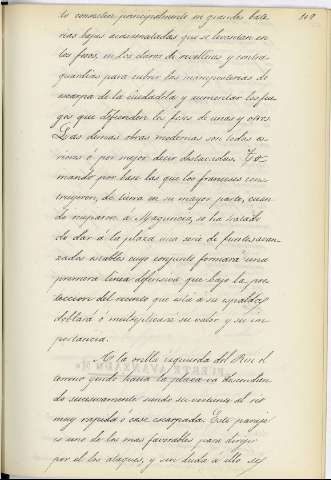 109
to consistir principalmente en grandes bate-
rias bajas acasamatadas que se levantan en
los fosos, en los claros de revellines y contra-
guardias para cubrir las mamposterias de
escarpa de la ciudadela y aumentar los fue-
gos que defienden los fosos de unas y otros.
Las demas obras modernas son todas ex-
teriores ó por mejor decir destacadas. To-
mando por base las que los franceses cons-
truyeron, de tierra en su mayor parte, cuan-
do ocuparon á Maguncia, se ha tratado
de dar á la plaza una serie de puntos avan-
zados notables cuyo conjunto formará una
primera linea defensiva que bajo la pro-
teccion del recinto que está á su espalda
doblará ó multiplicará su valor y su im-
portancia.
A la orilla izquierda del Rin el
terreno yendo hacia la plaza va descendien-
do sucesivamente siendo su vertiente al rio
muy rapida ó casi escarpada. Este paraje
es uno de los mas favorables para dirigir
por el los ataques, y sin duda á ello se